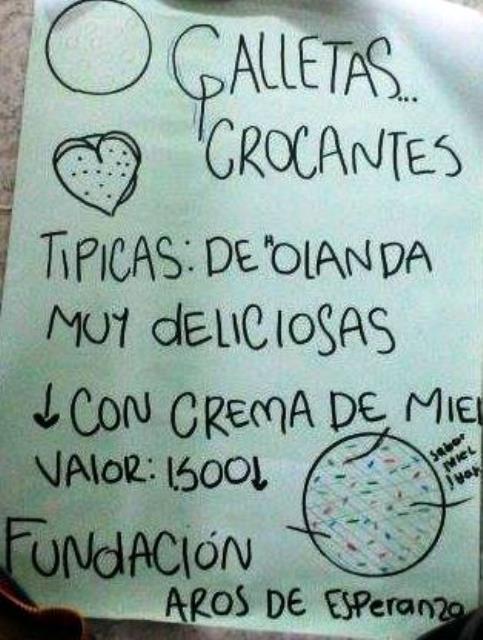 GALLETAS...
CROCANTES
TIPICAS: DE "OLANDA
MUY dELICIOSAS
↓ CON CREMA DE MIEL
VALOR: 1.500↓
sabor
MIEL
FUNdACIÓN
AROS DE ESPeranza